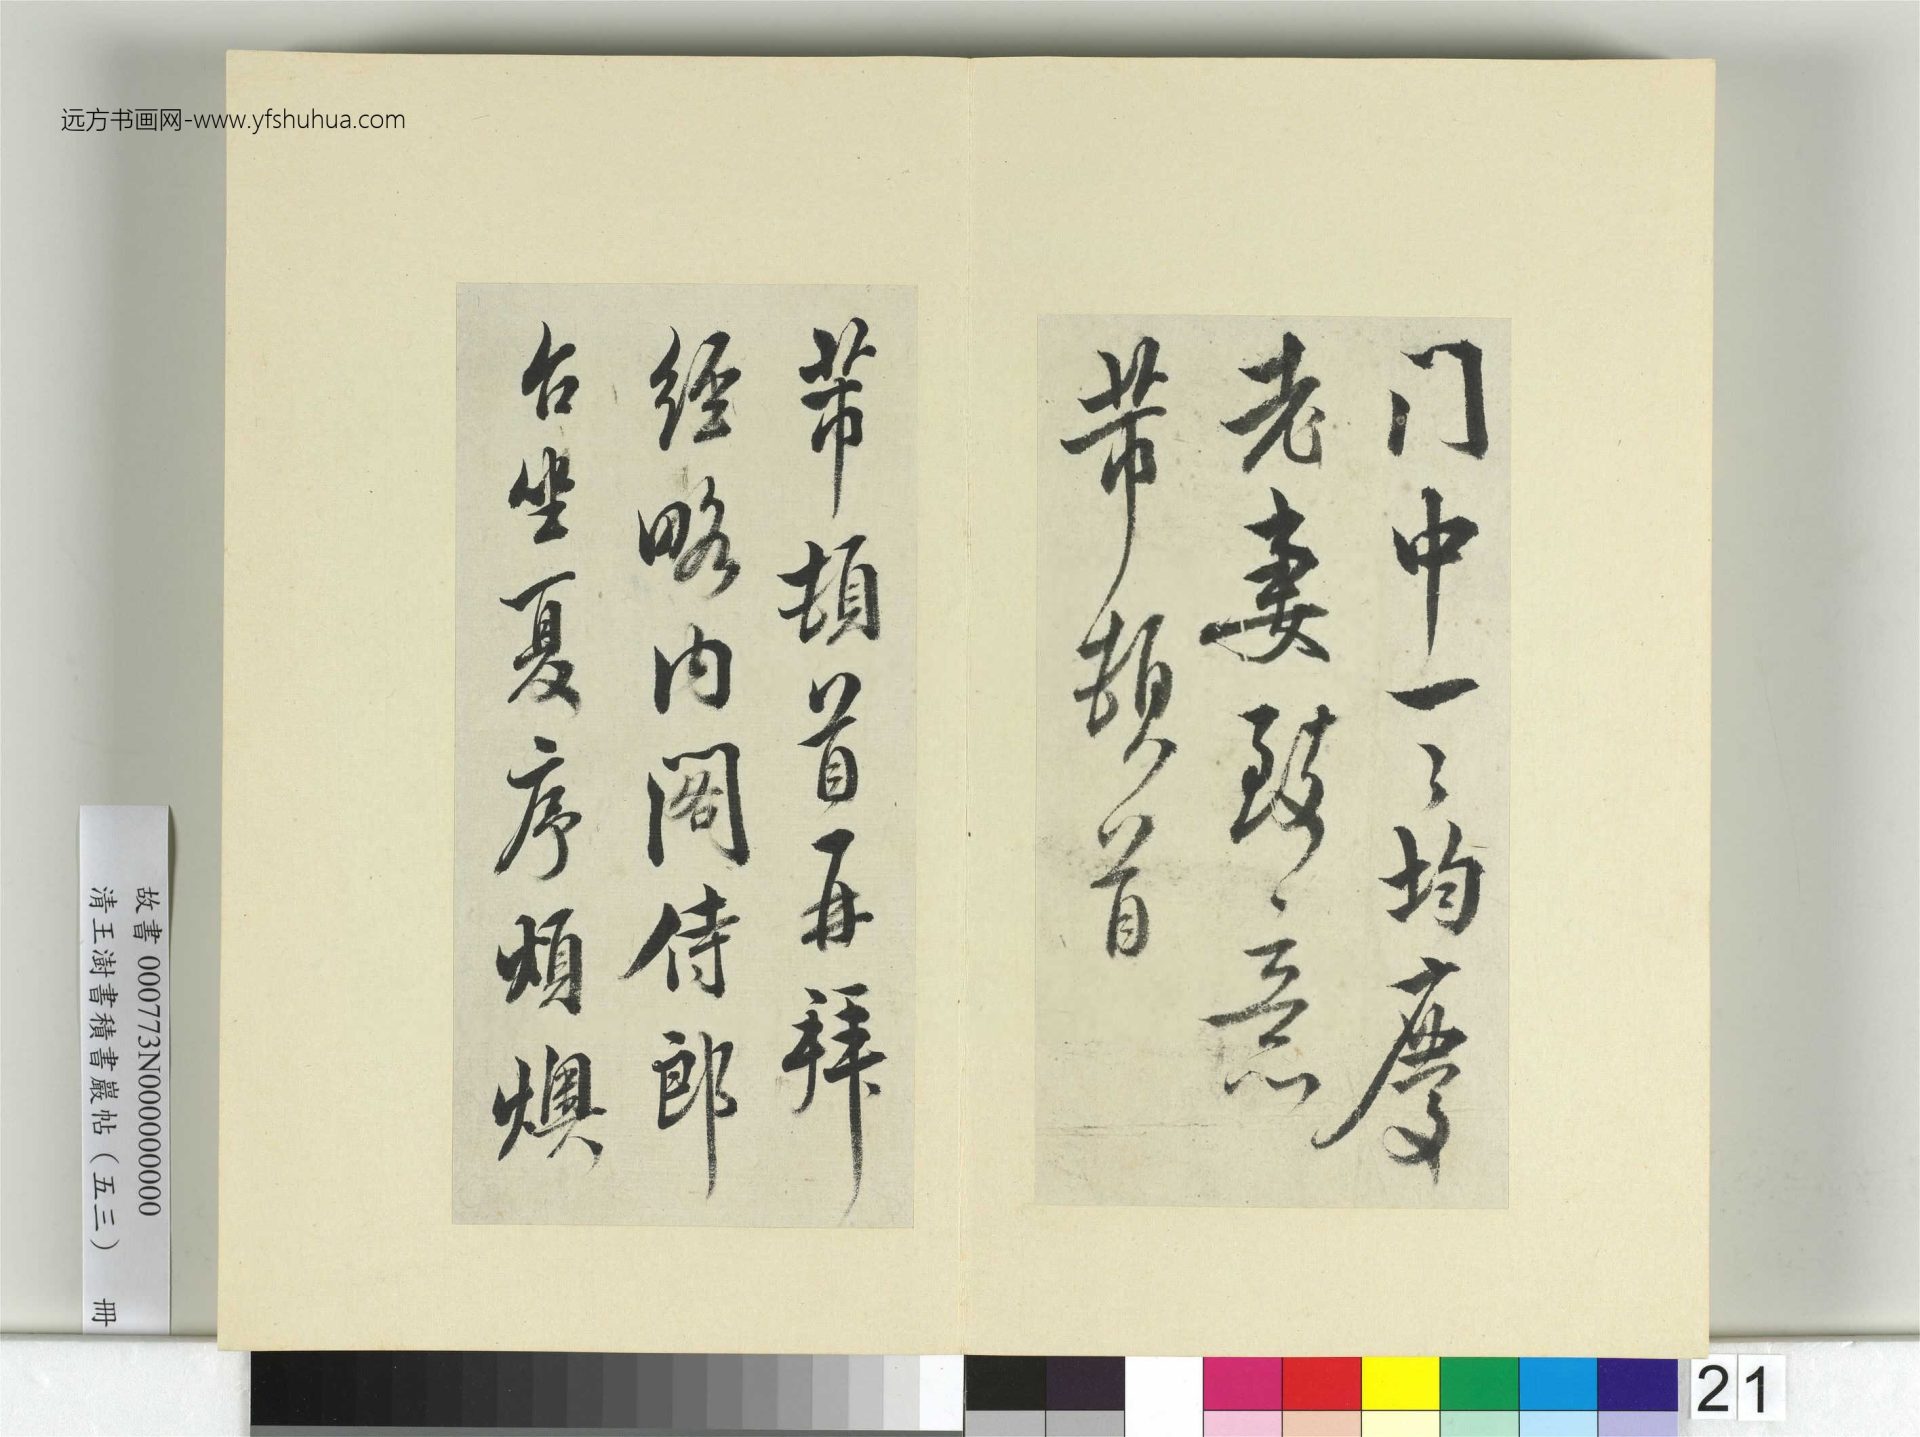 远方书画网-www.yfshuhua.com
门中一〻均慶
老妻致意
芾頓首
芾頓首再拜
經略內閣侍郎
台坐夏序煩燠
故書 000773N000000000
清王澍書積書巖帖（五三） 冊
21